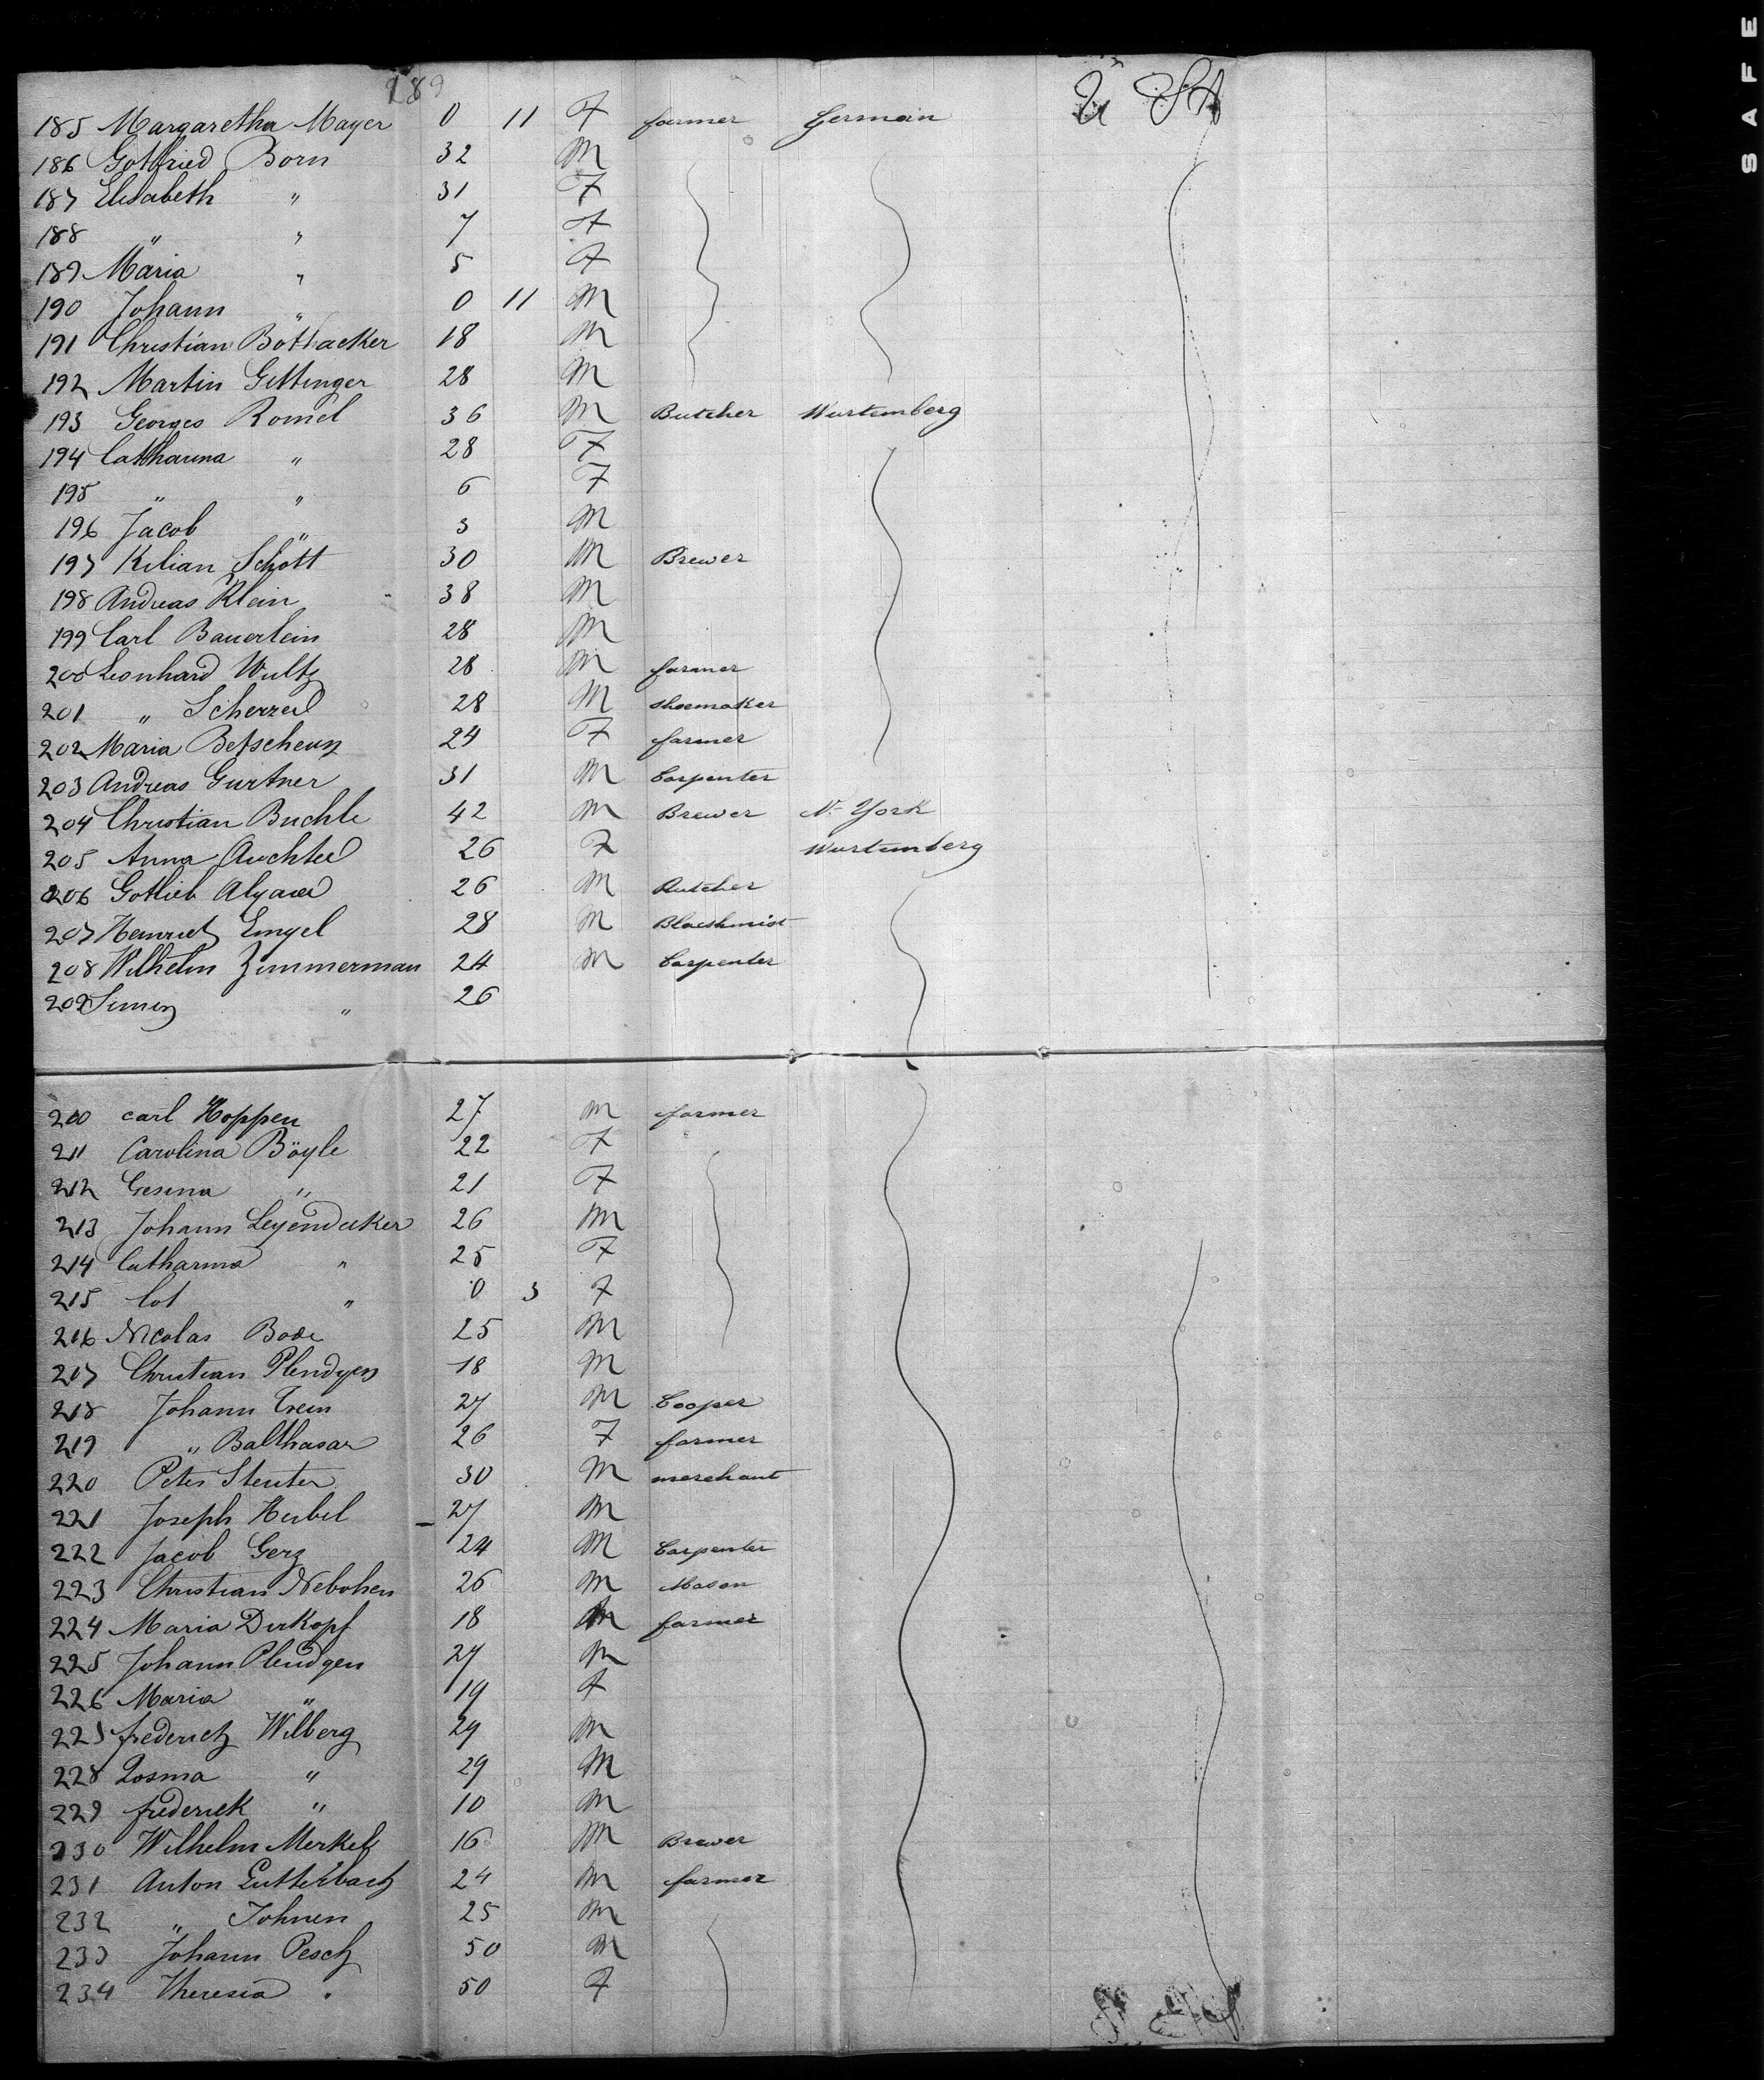 189
185 Margaretha Mayer 0 11 F farmer German U St
186 Gottfried Born 32 M
187 Elisabeth " 31 F
188 " " 7 F
189 Maria " 5 F
190 Johann " 0 11 M
191 Christian Bottacker 18 M
192 Martin Gettinger 28 M
193 Georges Romel 36 M Butcher Wurtemberg
194 Catharina " 28 F
195 " " 6 F
196 Jacob " 3 M
197 Kilian Schott 30 M Brewer
198 Andreas Klein 38 M
199 Carl Bauerlein 28 M
200 Leonhard Wultz 28 M farmer
201 " Scherzed 28 M shoemaker
202 Maria 24 F farmer
203 Andreas Gurtner 31 M Carpenter
204 Christian Buchle 42 M Brewer N. York
205 Anna Auchted 26 F Wurtemberg
206 Gotlieb 26 M Butcher
207 Heinrich Engel 28 M Blacksmist
208 Wilhelm Zimmerman 24 M Carpenter
209 Simon " 26
200 carl Hoppen 27 M farmer
211 Carolina Böyle 22 F
212 Gesina " 21 F
213 Johann Leyendecker 26 M
214 Catharina " 25 F
215 Cot " 0 3 F
216 Nicolas Bode 25 M
217 Christian Plendgen 18 M
218 Johann Trein 27 M Cooper
219 " Balthasar 26 F farmer
220 Peter Steuter 30 M merchant
221 Joseph Heibel 27 M
222 Jacob Gerz 24 M Carpenter
223 Christian Nebohen 26 M Mason
224 Maria Dirkopf 18 M farmer
225 Johann Plendgen 27 M
226 Maria " 19 F
227 frederich Wilberg 29 M
228 Rosma " 29 M
229 frederick " 10 M
230 Wilhelm Merkel 16 M Brewer
231 Anton Lutterbach 24 M farmer
232 " Johnen 25 M
233 Johann Pesch 50 M
234 Theresia " 50 F
SAFE